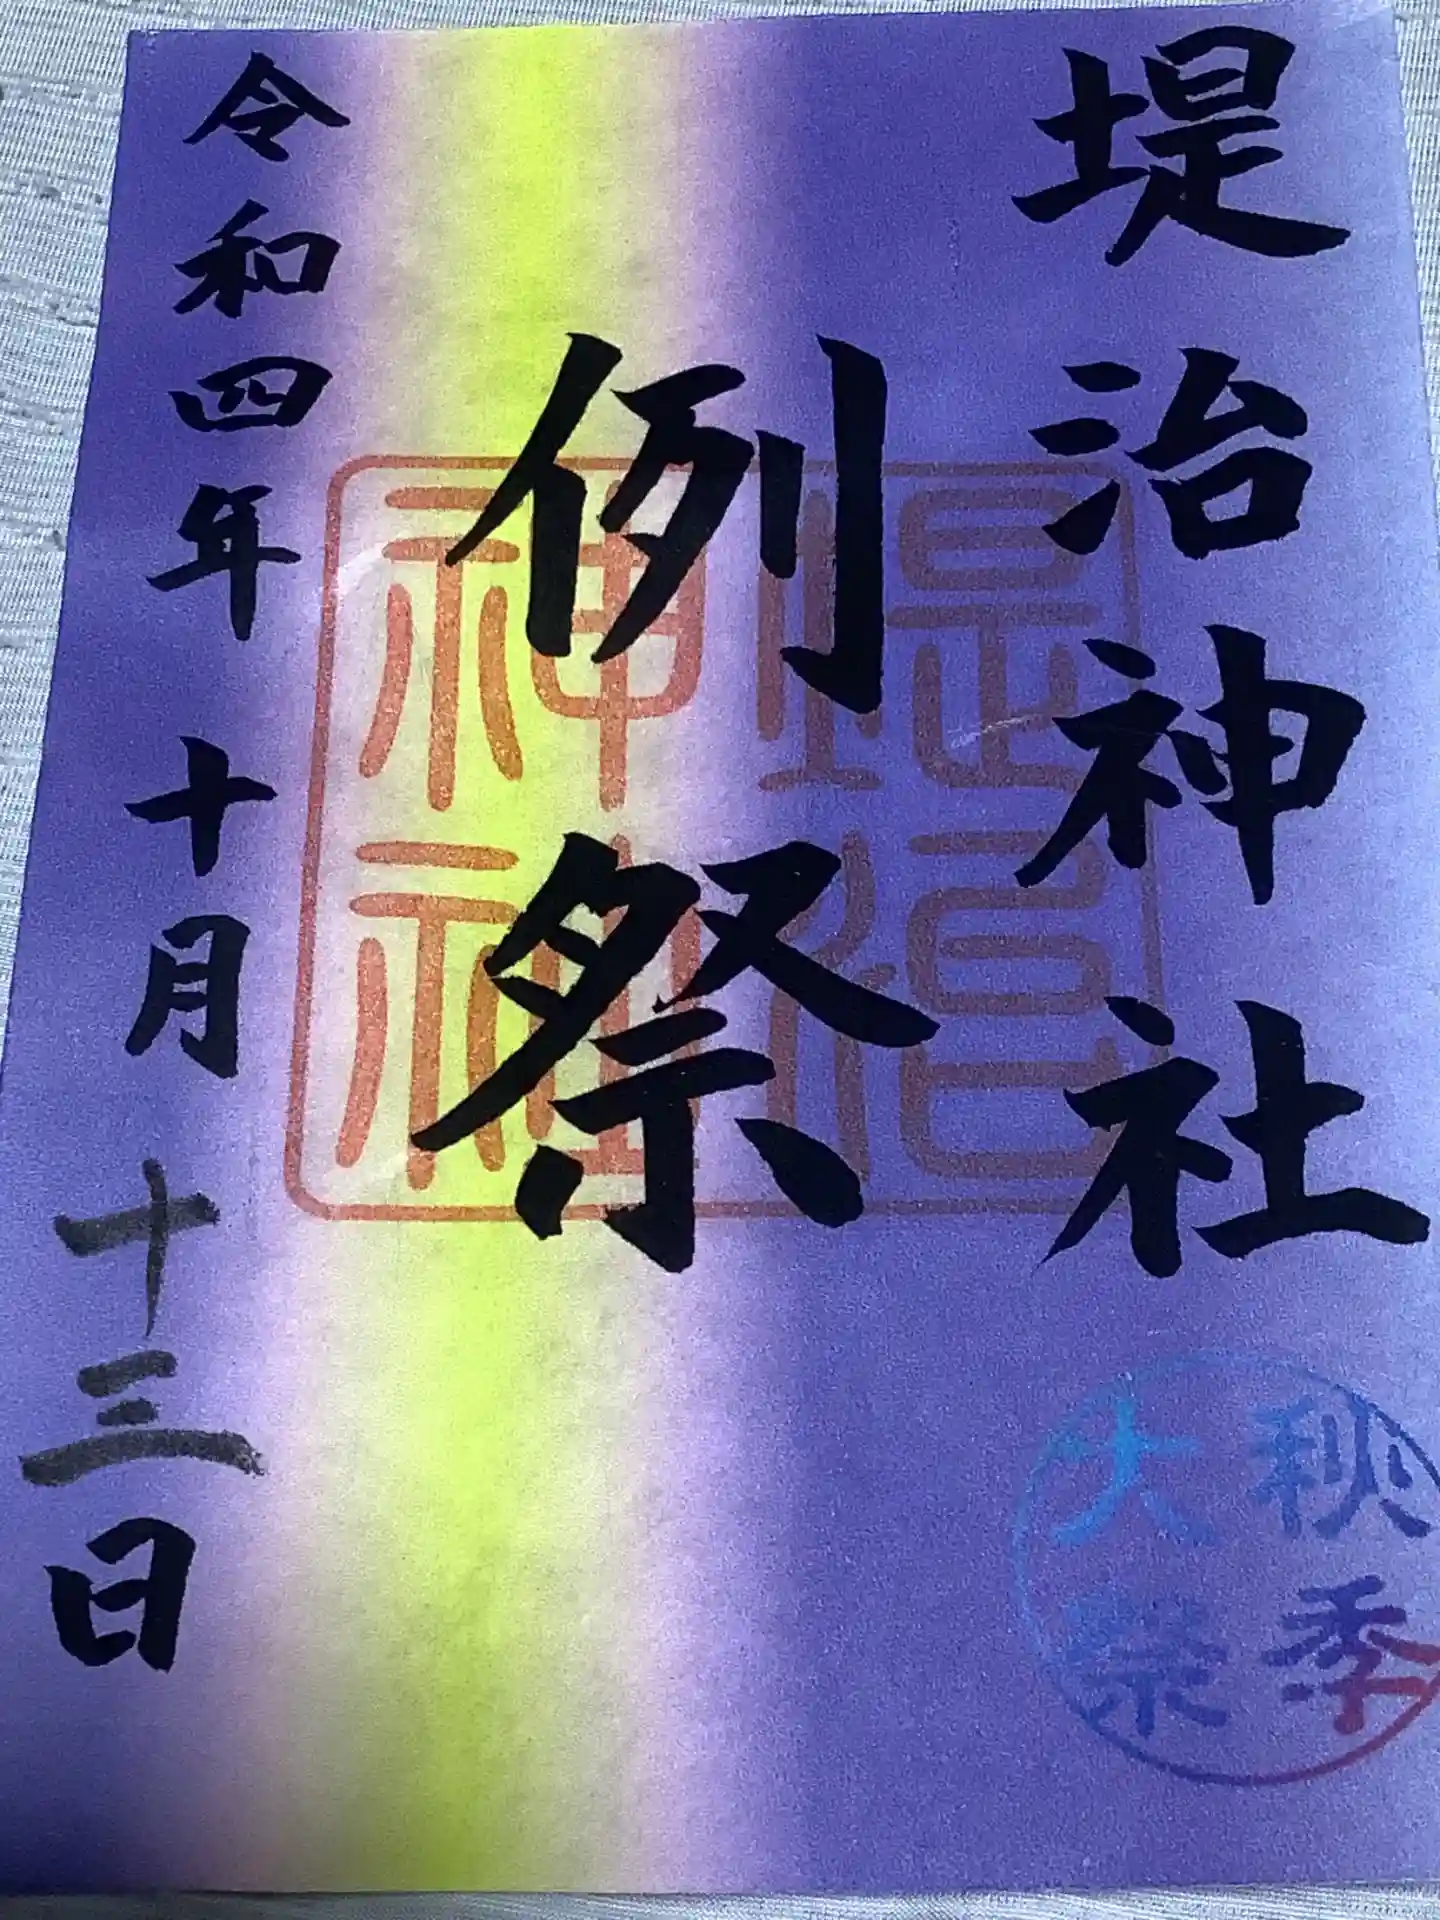 堤治神社
例祭
令和四年十月十三日
堤治
神社
秋季
大祭